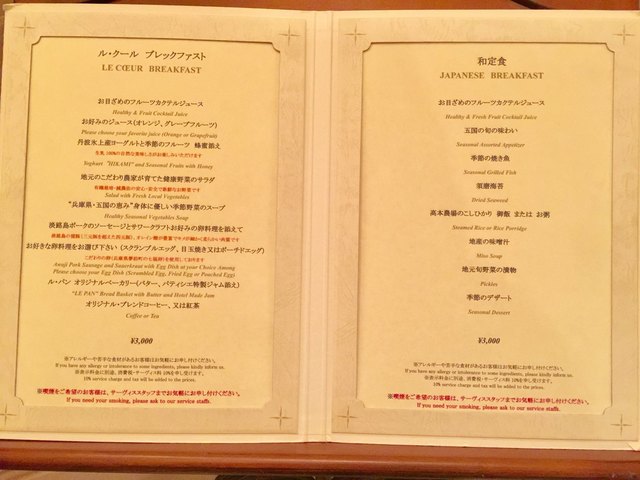 ル・クール ブレックファスト
LE CŒUR BREAKFAST
お目ざめのフルーツカクテルジュース
Healthy & Fruit Cocktail Juice
お好みのジュース(オレンジ、グレープフルーツ)
Please choose your favorite juice (Orange or Grapefruit)
丹波氷上産ヨーグルトと季節のフルーツ 蜂蜜添え
生乳100%の自然な美味しさがお楽しみいただけます
Yoghurt "HIKAMI" and Seasonal Fruits with Honey
地元のこだわり農家が育てた健康野菜のサラダ
有機栽培・減農薬の安心・安全で新鮮なお野菜です
Salad with Fresh Local Vegetables
"兵庫県・五国の恵み"身体に優しい季節野菜のスープ
Healthy Seasonal Vegetables Soup
淡路島ポークのソーセージとサワークラフトお好みの卵料理を添えて
お好きな卵料理をお選び下さい (スクランブルエッグ、目玉焼き又はポーチドエッグ)
Awaji Pork Sausage and Sauerkraut with Egg Dish at your Choice Among
Please choose your Egg Dish (Scrambled Egg, Fried Egg or Pouched Egg)
ル・パン オリジナルベーカリー(バター、パティシエ特製ジャム添え)
"LE PAN" Bread Basket with Butter and Hotel Made Jam
オリジナル・ブレンドコーヒー、又は紅茶
Coffee or Tea
¥3,000
※アレルギーや苦手な食材があるお客様はお気軽にお申し付けください。
If you have any allergy or intolerance to some ingredients, please kindly inform us.
※表示料金に別途、消費税・サーヴィス料 10%を申し受けます。
10% service charge and tax will be added to the prices.
※喫煙をご希望のお客様は、サーヴィススタッフまでお気軽にお申し付けください。
If you need your smoking, please ask to our service staffs.
和定食
JAPANESE BREAKFAST
お目ざめのフルーツカクテルジュース
Healthy & Fresh Fruit Cocktail Juice
五国の旬の味わい
Seasonal Assorted Appetizer
季節の焼き魚
Seasonal Grilled Fish
須磨海苔
Dried Seaweed
高本農場のこしひかり 御飯 または お粥
Steamed Rice or Rice Porridge
地産の味噌汁
Miso Soup
地元旬野菜の漬物
Pickles
季節のデザート
Seasonal Dessert
¥3,000
※アレルギーや苦手な食材があるお客様はお気軽にお申し付けください。
If you have any allergy or intolerance to some ingredients, please kindly inform us.
※表示料金に別途、消費税・サーヴィス料 10%を申し受けます。
10% service charge and tax will be added to the prices.
※喫煙をご希望のお客様は、サーヴィススタッフまでお気軽にお申し付けください。
If you need your smoking, please ask to our service staffs.